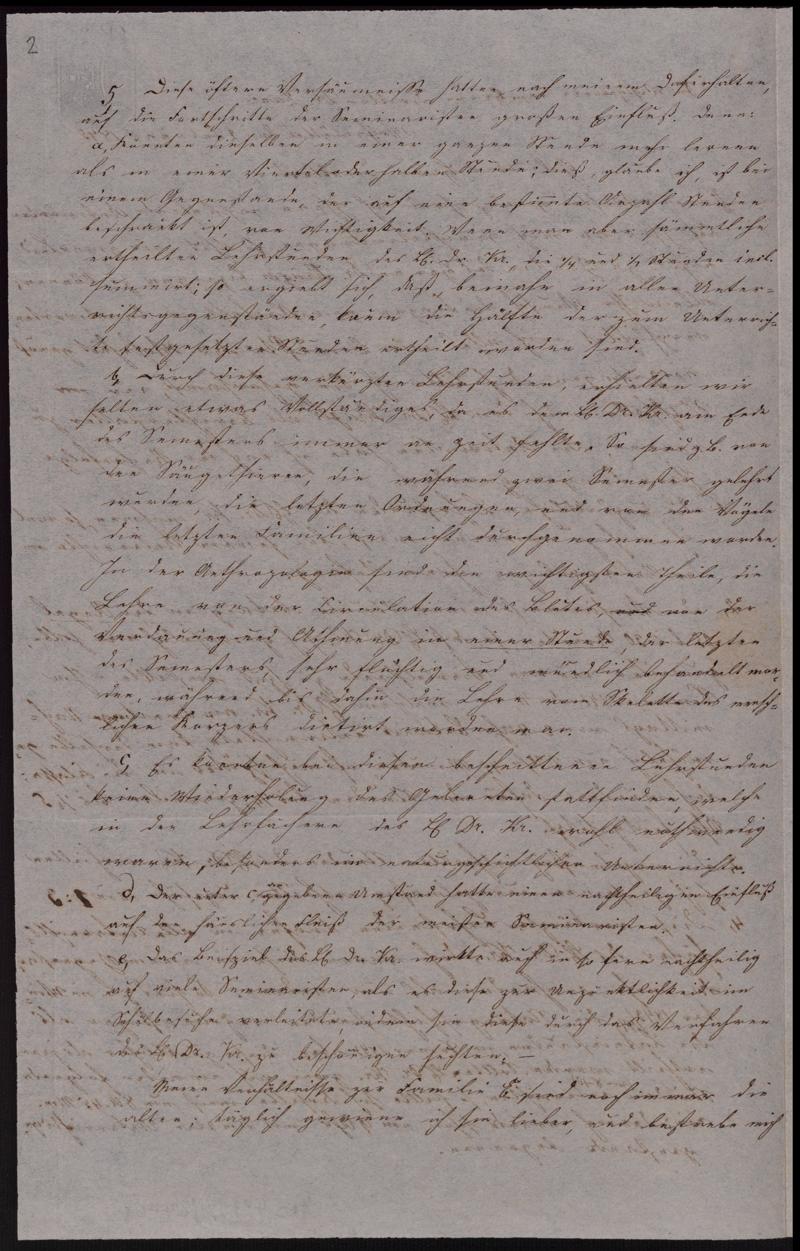 2
5, Diese öftern Versäumnisse hatten nach meinem Dafürhalten,
auf die Fortschritte der Seminaristen großen Einfluß. Denn:
a, Konnten dieselben in einer ganzen Stunde mehr lernen
als in einer Viertel- oder halben Stunde; dieß, glaube ich, ist bei
einem Gegenstande, der auf eine bestimmte Anzahl Stunden
beschränkt ist, von Wichtigkeit. Wenn man aber sämmtliche
ertheilten Lehrstunden des H. Dr. Kr., die 1/4 und 1/2 Stunden incl.
summirt; so ergiebt sich, daß, beinahe in allen Unter-
richtsgegenständen, kaum die Hälfte der zum Unterrich-
te festgesetzten Stunden ertheilt worden sind.
b, Durch diese verkürzten Lehrstunden, erhielten wir
selten etwas Vollständiges, da es dem H. Dr. Kr. am Ende
des Semesters immer an Zeit fehlte. So sind z.B. von
den Säugethieren, die während zwei Semester gelehrt
wurden, die letzten Ordnungen, und von den Vögeln
die letzten Familien nicht durchgenommen worden.
In der Anthropologie sind die wichtigsten Theile, die
Lehre von der Circulation des Blutes, und von der
Verdauung und Athmung in einer Stunde, der letzten
des Semesters, sehr flüchtig und mündlich behandelt wor-
den, während bis dahin die Lehre vom Skelette des mensch-
lichen Körpers dictirt worden war.
c, Es konnten bei diesen beschnittenen Lehrstunden
keine Wiederholung des Gelernten stattfinden, welche
in den Lehrfächern des H. Dr. Kr. wohl nothwendig
waren, besonders im naturgeschichtlichen Unterrichte.
d, Der unter c gegebene Umstand hatte einen nachtheiligen Einfluß
auf den häuslichen Fleiß der meisten Seminaristen.
e, Das Beispiel des H. Dr. Kr. wirkte auch in so fern nachtheilig
auf viele Seminaristen, als es diese zur Unpünktlichkeit im
Schulbesuche verleitete, indem sie diese durch das Verfahren
des H. Dr. Kr. zu beschönigen suchten. –
Meine Verhältnisse zur Familie sind noch immer die
alten; täglich gewinne ich sie lieber, und bestrebe mich